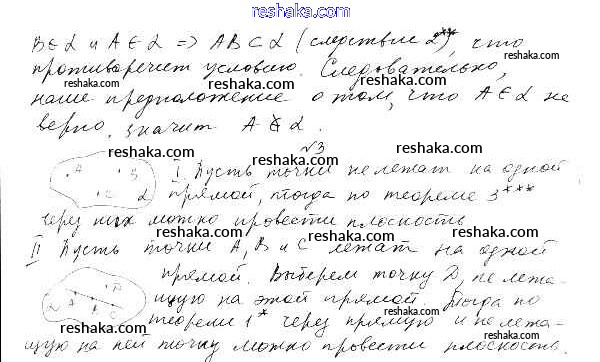 reshaka.com
B∈α и A∈α => AB⊂α (следствие 2**), что
противоречит условию. Следовательно,
reshaka.com reshaka.com
наше предположение о том, что A∈α не
верно, значит A∉α.
reshaka.com reshaka.com reshaka.com
№3
A B C α
I Пусть точки не лежат на одной
прямой, тогда по теореме 3***
reshaka.com reshaka.com
через них можно провести плоскость
reshaka.com
II Пусть точки A, B и C лежат на одной
reshaka.com
прямой. Выберем точку D, не лежа-
щую на этой прямой. Тогда по
reshaka.com reshaka.com
теореме 1* через прямую и не лежа-
щую на ней точку можно провести плоскость.
reshaka.com reshaka.com